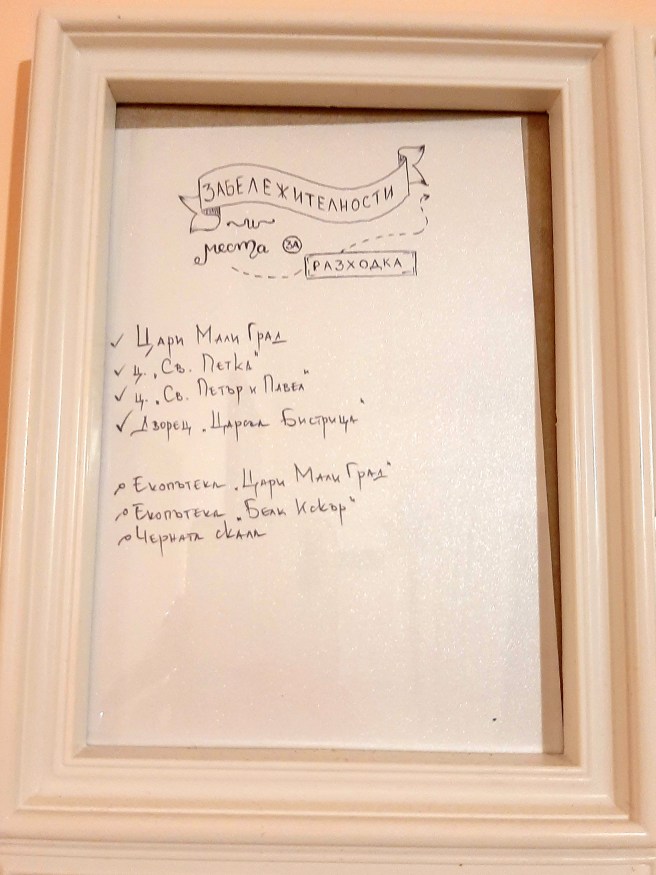 ЗАБЕЛЕЖИТЕЛНОСТИ
~и~
места ЗА
РАЗХОДКА
✓ Цари Мали Град
✓ ц. „Св. Петка"
✓ ц. „Св. Петър и Павел"
✓ Дворец „Царска Бистрица"
Екопътека „Цари Мали Град"
Екопътека „Бели Искър"
Черната скала